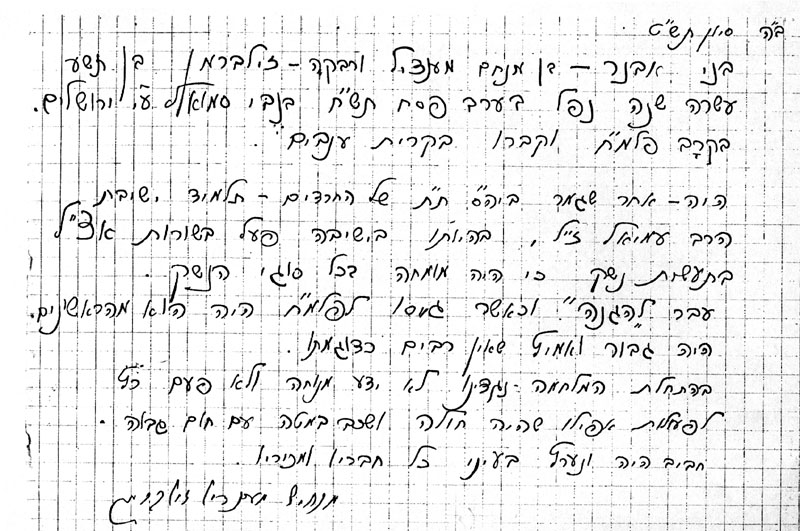 ב"ה סיון תש"ט
בני אבנר – בן מנחם מענדיל ורבקה – זילברמן בן תשע
עשרה שנה נפל בערב פסח תש"ח בנבי סמואל ע"י ירושלים.
בקרב פלמ"ח וקברו בקרית ענבים.
היה – אחר שגמר ביה"ס ת"ת של החרדים – תלמיד ישיבת
הרב עמיאל ז"ל, בהיותו בישיבה פעל בשורות אצ"ל
בתעשית נשק כי היה מומחה בכל סוגי הנשק.
עבר "להגנה" וכאשר גויסו לפלמ"ח היה הוא מהראשונים.
היה גבור ואמיץ שאין רבים כדוגמתו.
בהתחלת המלחמה נגדינו לא ידע מנוחה ולא פעם רץ
לפעולות אפילו שהיה חולה ושכב במטה עם חום גבוה.
חביב היה ונערץ בעיני כל חבריו ומכיריו.
מנחם מענדיל